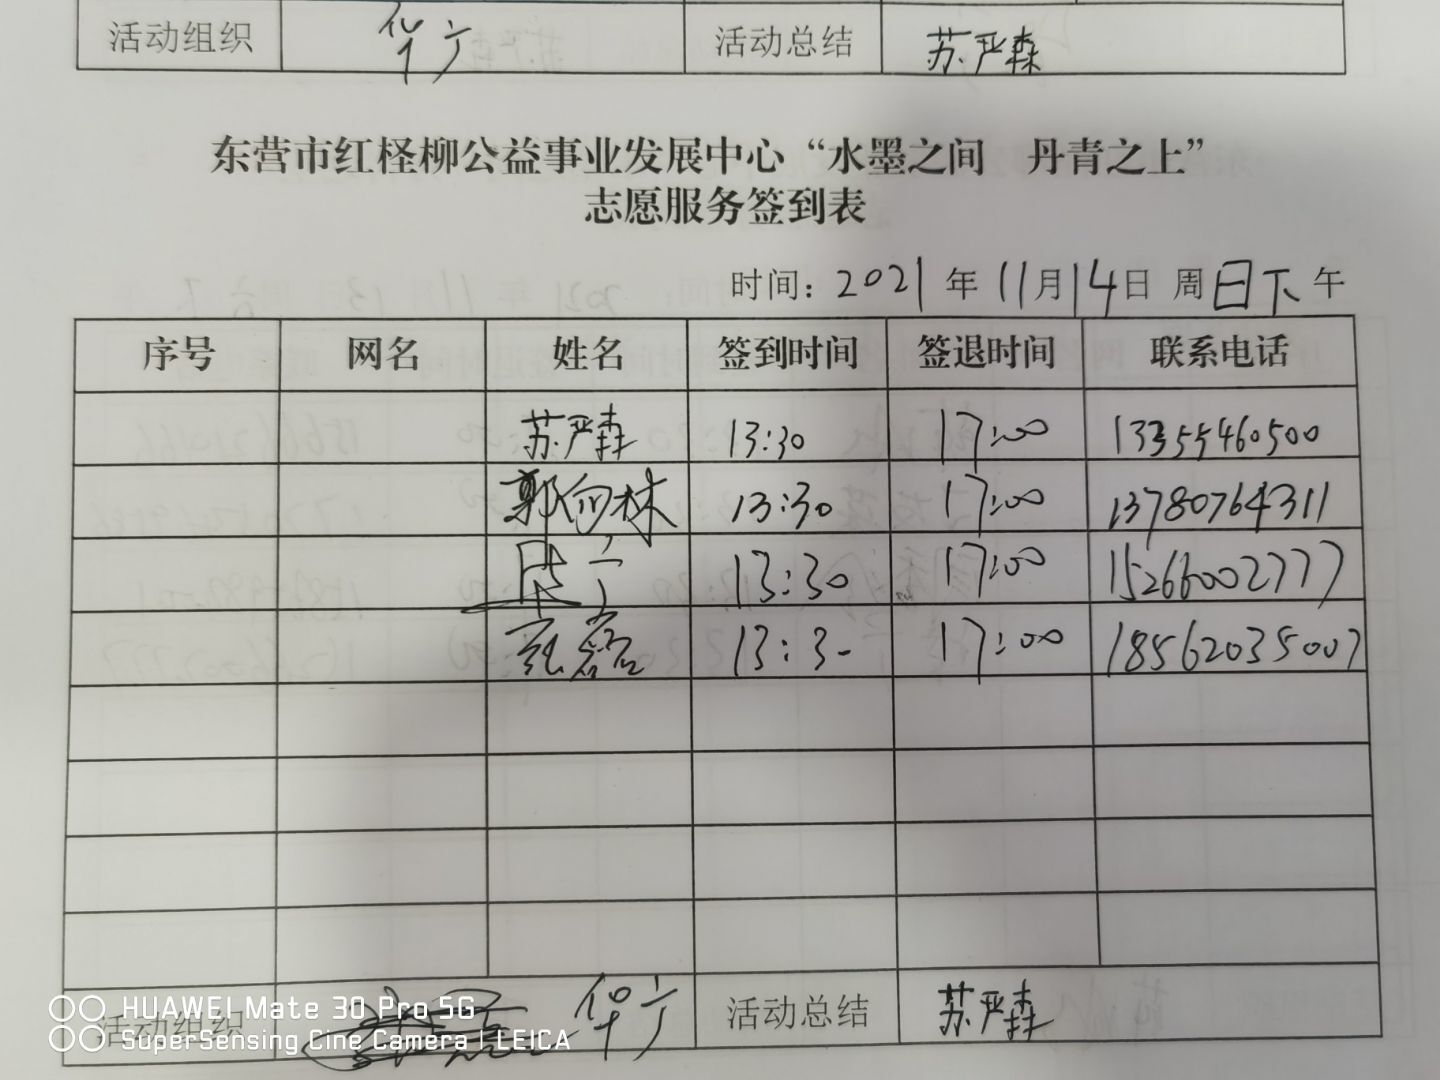 活动组织 活动总结 苏严森
东营市红柽柳公益事业发展中心“水墨之间 丹青之上”
志愿服务签到表
时间：2021年11月14日 周日下午
序号 网名 姓名 签到时间 签退时间 联系电话
苏严森 13:30 17:00 13355460500
郭向林 13:30 17:00 13780764311
13:30 17:00 15266002777
13:30 17:00 18562035007
活动组织 活动总结 苏严森
HUAWEI Mate 30 Pro 5G
SuperSensing Cine Camera | LEICA